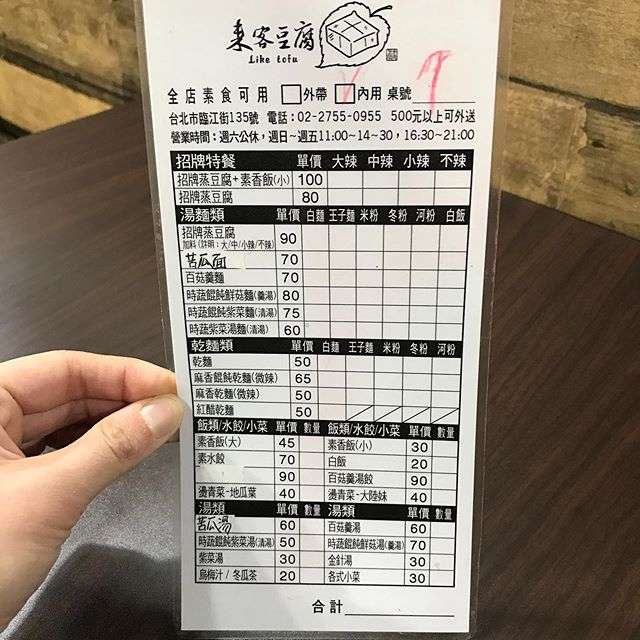 來客豆腐
Like tofu
全店素食可用 外帶 內用 桌號 7
台北市臨江街135號 電話：02-2755-0955 500元以上可外送
營業時間：週六公休，週日~週五11:00~14~30，16:30~21:00
招牌特餐 單價 大辣 中辣 小辣 不辣
招牌蒸豆腐+素香飯(小) 100
招牌蒸豆腐 80
湯麵類 單價 白麵 王子麵 米粉 冬粉 河粉 白飯
招牌蒸豆腐 90
加料(註明：大/中/小辣/不辣)
苦瓜面 70
百菇羹麵 70
時蔬餛飩鮮菇麵(羹湯) 80
時蔬餛飩紫菜麵(清湯) 75
時蔬紫菜湯麵(清湯) 60
乾麵類 單價 白麵 王子麵 米粉 冬粉 河粉
乾麵 50
麻香餛飩乾麵(微辣) 65
麻香乾麵(微辣) 50
紅醋乾麵 50
飯類/水餃/小菜 單價 數量 飯類/水餃/小菜 單價 數量
素香飯(大) 45 素香飯(小) 30
素水餃 70 白飯 20
90 百菇羹湯餃 90
燙青菜-地瓜葉 40 燙青菜-大陸妹 40
湯類 單價 數量 湯類 單價 數量
苦瓜湯 60 百菇羹湯 60
時蔬餛飩紫菜湯(清湯) 50 時蔬餛飩鮮菇湯(羹湯) 70
紫菜湯 30 金針湯 30
烏梅汁 / 冬瓜茶 20 各式小菜 30
合計